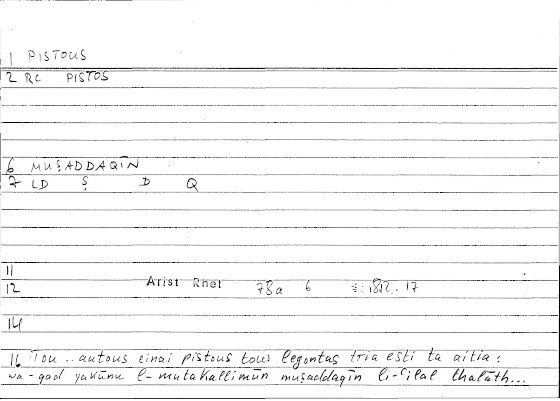 1 PISTOUS
2 RC PISTOS
6 MUṢADDAQĪN
7 LD Ṣ D Q
11
12 Arist Rhet 78a 6 17
14
16 Tou .. autous einai pistous tous legontas tria esti ta aitia:
wa-qad yakūnu l-mutakallimūn muṣaddaqīn li-ʿilal thalāth...